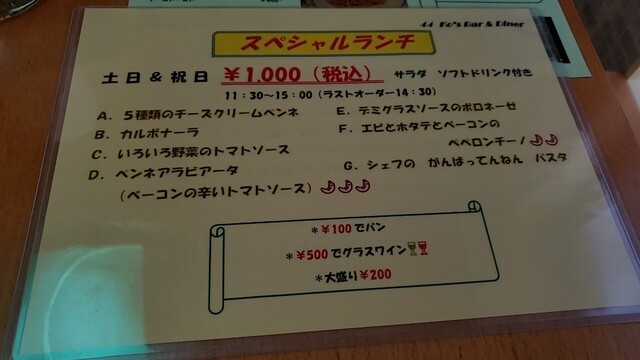 44 Ko's Bar & Diner
スペシャルランチ
土日&祝日 ¥1,000(税込) サラダ ソフトドリンク付き
11:30~15:00(ラストオーダー14:30)
A. 5種類のチーズクリームペンネ
B. カルボナーラ
C. いろいろ野菜のトマトソース
D. ペンネアラビアータ
(ベーコンの辛いトマトソース)
E. デミグラスソースのボロネーゼ
F. エビとホタテとベーコンの
ペペロンチーノ
G. シェフの がんばってんねん パスタ
*¥100でパン
*¥500でグラスワイン
*大盛り¥200